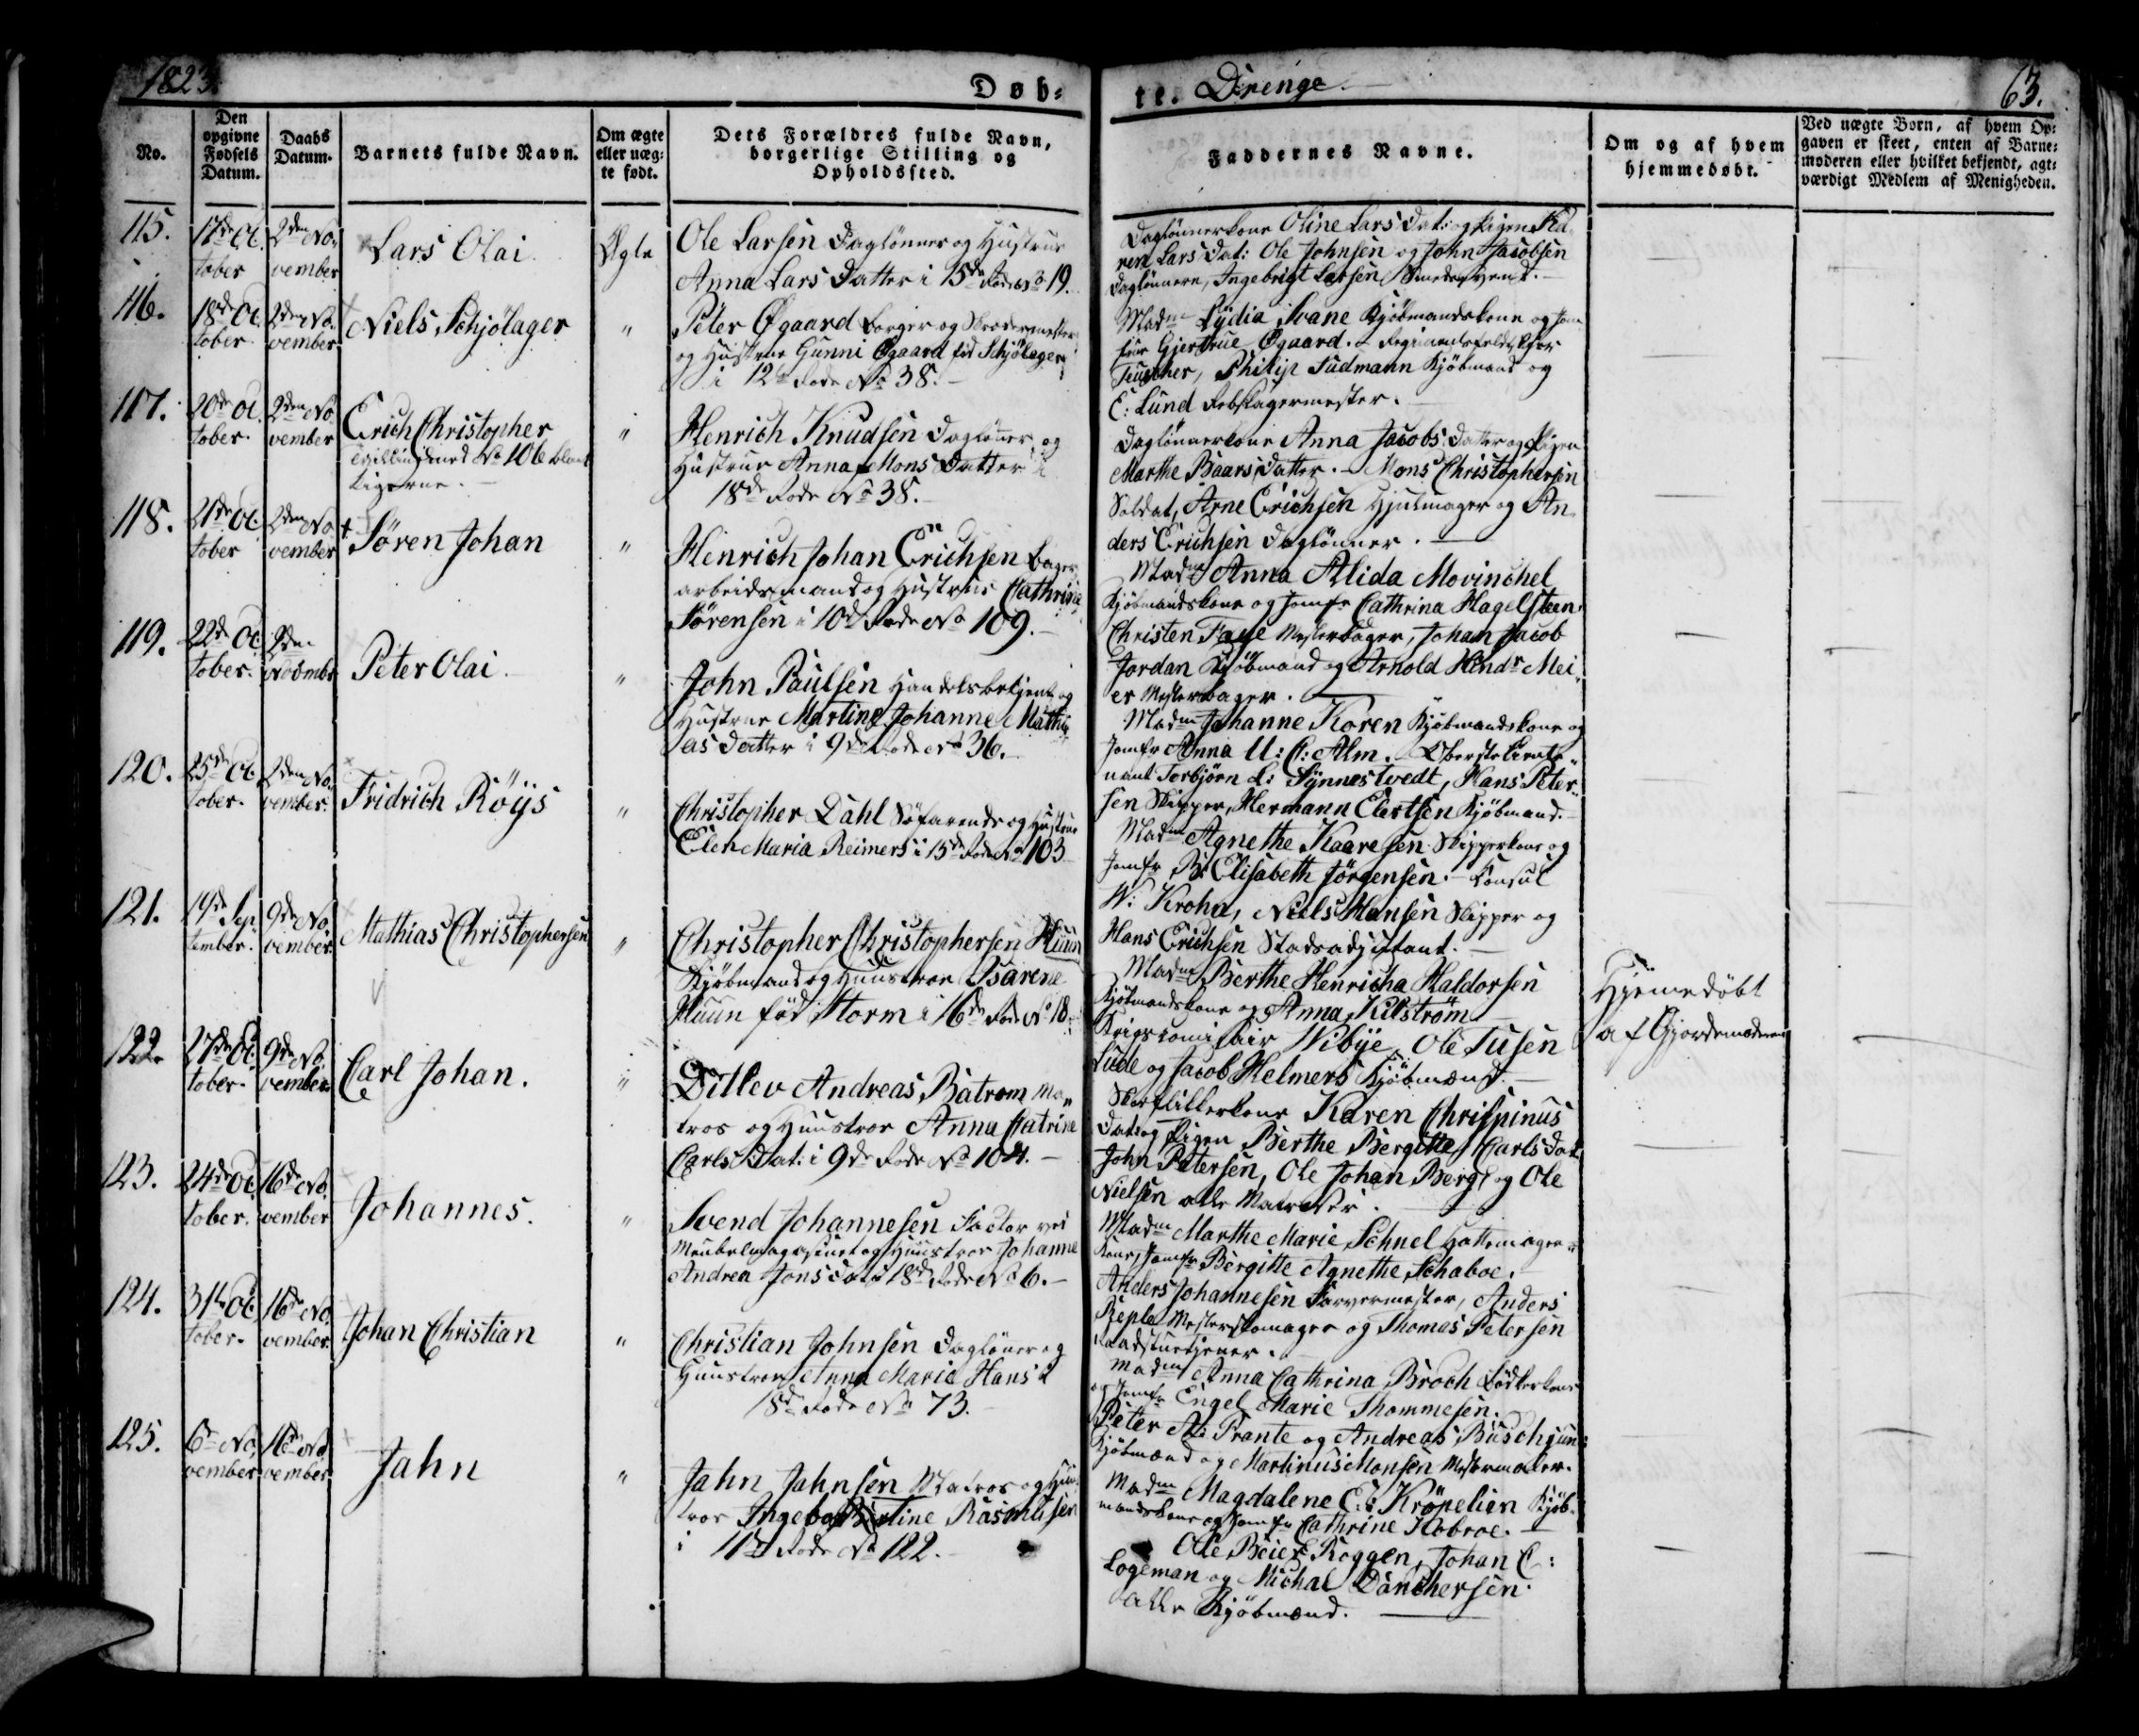 1823.
Døb-
te. Drenge.
63.
No.
Den
opgivne
Fødsels
Datum.
Daabs
Datum.
Barnets fulde Navn.
Om ægte
eller uæg-
te født.
Dets Forældres fulde Navn,
borgerlige Stilling og
Opholdssted.
Faddernes Navne.
Om og af hvem
hjemmedøbt.
Ved uægte Børn, af hvem Op-
gaven er skeet, enten af Barne-
moderen eller hvilket bekjendt, agt-
værdigt Medlem af Menigheden.
115.
17de Oc
tober
2den No-
vember
Lars Olai
Ægte
Ole Larsen Daglønner og Hustrue
Anna Lars Datter i 15de Rode No 19.
Daglønnerkone Oline Lars Dat: og Pigen Ka-
ren Lars Dat: Ole Johnsen og John Jacobsen
Daglønnere, Ingebrigt Larsen Smedesvend.
116.
18de Oc
tober
2den No-
vember
Niels Schjölager
"
Peter Øgaard Borger og Skredermester
og Hustrue Gunni Øgaard fød Schjölager
i 12te Rode No 38.
Madme Lydia Svane Kjøbmandskone og Jom
frue Gjertrue Øgaard. Regimentsfeldskjer
Teuscher, Philip Sudmann Kjøbmand og
C: Lund Rebslagermester.
117.
20de Oc
tober.
2den No
vember
Erich Christopher
Tvillingsmed No 106 blant
Pigerne.
"
Henrich Knudsen Dagløner og
Hustrue Anna Mons Datter i
18de Rode No 38.
Daglønnerkone Anna Jacobs Datter og Pigen
Marthe Baars Datter. Mons Christophersen
Soldat, Arne Erichsen Hjulmager og An-
ders Erichsen Daglønner.
118.
21de Oc
tober
2den No
vember
Søren Johan
"
Henrich Johan Erichsen Bager
arbeidsmand og Hustrue Cathrine
Sørensen i 10de Rode No 109.
Madme Anna Alida Movinchel
Kjøbmandskone og Jomfr Cathrina Hagelsteen
Christen Faye Mesterbager, Johan Jacob
Jordan Kjøbmand og Arnold Hindr Mei-
er Mesterbager.
119.
22de Oc
tober.
2den
Novembr
Peter Olai
"
John Paulsen Handelsbetjent og
Hustrue Martine Johanne Mathi
as Datter i 9de Rode No 36.
Madme Johanne Koren Kjøbmandskone og
Jomfr Anna U: C: Alm. Oberstelieute-
nant Torbjørn d: Synnestvedt, Hans Peter-
sen Skipper, Hermann Elertsen Kjøbmand.
120.
25de Oc
tober.
2den No
vember.
Fridrich Röys
"
Christopher Dahl Søfarende og Hustrue
Elen Maria Reimers i 15de Rode No 103
Madme Agnethe Kaaresen Skipperkone og
Jomfr B: Elisabeth Jørgensen. Konsul
W: Krohn, Niels Hansen Skipper og
Hans Erichsen Stadsadjutant.
121.
19de Sep
tember.
9de No
vember
Mathias Christophersen
"
Christopher Christophersen Huun
Kjøbmand og Huustroe Isarene
Huun fød Storm i 16de Rode No 18.
Madme Berthe Henricha Haldorsen
Kjøbmandskone og Anna Kilstrøm
Krigscomisair Wibye, Ole Tusen
Lude og Jacob Helmers Kjøbmænd.
Hjemedøbt
af Gjordemoderen
122.
27de Oc
tober.
9de No
vember
Carl Johan.
"
Ditlev Andreas Batrom Ma-
tros og Huustroe Anna Catrine
Carls Dat: i 9de Rode No 104.
Skoeflikkerkone Karen Chrispinus
Dat: og Pigen Berthe Bergitte Carls Dat
John Petersen, Ole Johan Berg og Ole
Nielsen alle Matroser.
123.
24de Oc
tober.
16de No
vember
Johannes.
"
Svend Johannesen Factor ved
Meubelmagasinet og Huustroe Johanne
Andrea Jons Dat: 18de Rode No 6.
Madme Marthe Marie Schnel Hattemager-
kone, Jomfr Bergitte Agnethe Schaboe.
Anders Johannesen Farvermester, Anders
Reple Mesterskomager og Thomas Petersen
Raadstuetjener.
124.
31te Oc
tober.
16de No
vember.
Johan Christian
"
Christian Johnsen Dagløner og
Huustroe Anna Marie Hans i
18de Rode No 73.
Madme Anna Cathrina Broch Bødkerkone
og Jomfr Engel Marie Thommesen.
Peter A: Prante og Andreas Busch jun:
Kjøbmænd og Martinus Monsen Mestermaler.
125.
6te No
vember
16de No
vember
Jahn
"
Jahn Jahnsen Matros og Huus
troe Ingebor Birtine Rasmusen
i 11te Rode No 122.
Madme Magdalene E: Kröpelien Kjøb-
mandskone og Jomfr Cathrine Hobroe.
Ole Beier Roggen, Johan C:
Logeman og Michal Danchersen.
alle Kjøbmænd.